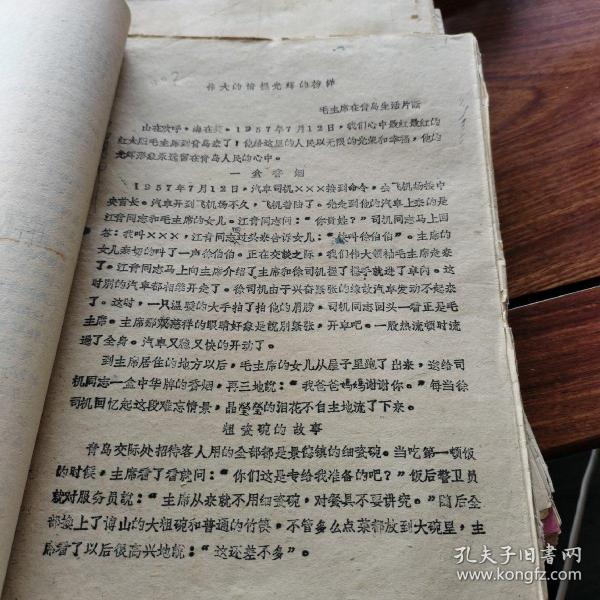 伟大的情操光辉的榜样
毛主席在青岛生活片断
山在欢呼，海在笑。1957年7月12日，我们心中最红最红的
红太阳毛主席到青岛来了！他给这里的人民以无限的光荣和幸福，他的
光辉形象永远留在青岛人民的心中。
一盒香烟
1957年7月12日，汽车司机×××接到命令，去飞机场接中
央首长。汽车开到飞机场不久，飞机着陆了。先走到他的汽车上来的是
江青同志和毛主席的女儿。江青同志问：“你贵姓？”司机同志马上回
答：我叫×××，江青同志过头来告诉女儿：“快叫徐伯伯”。主席的
女儿亲切的叫了一声徐伯伯。正在交谈之际，我们伟大领袖毛主席走来
了。江青同志马上向主席介绍了主席和徐司机握了握手就进了车内。这
时别的汽车都相继开走了。徐司机由于兴奋紧张的缘故汽车发动不起来
了。这时，一只温暖的大手拍了拍他的肩膀，司机同志回头一看正是毛
主席。主席那慈祥的眼睛好象是说别紧张，开车吧。一股热流顿时流
遍了全身。汽车又稳又快的开动了。
到主席居住的地方以后，毛主席的女儿从屋子里跑了出来，送给司
机同志一盒中华牌的香烟，再三地说：“我爸爸妈妈谢谢你。”每当徐
司机回忆起这段难忘情景，晶莹莹的泪花不自主地流了下来。
粗瓷碗的故事
青岛交际处招待客人用的全部都是景德镇的细瓷碗。当吃第一顿饭
的时候，主席看了看就问：“你们这是专给我准备的吧？”饭后警卫员
就对服务员说：“主席从来就不用细瓷碗，对餐具不要讲究。”随后全
部换上了博山的大粗碗和普通的竹筷，不管多么点菜都放到大碗里，主
席看了以后很高兴地说：“这还差不多”。
孔夫子旧书网
www.kongfz.com